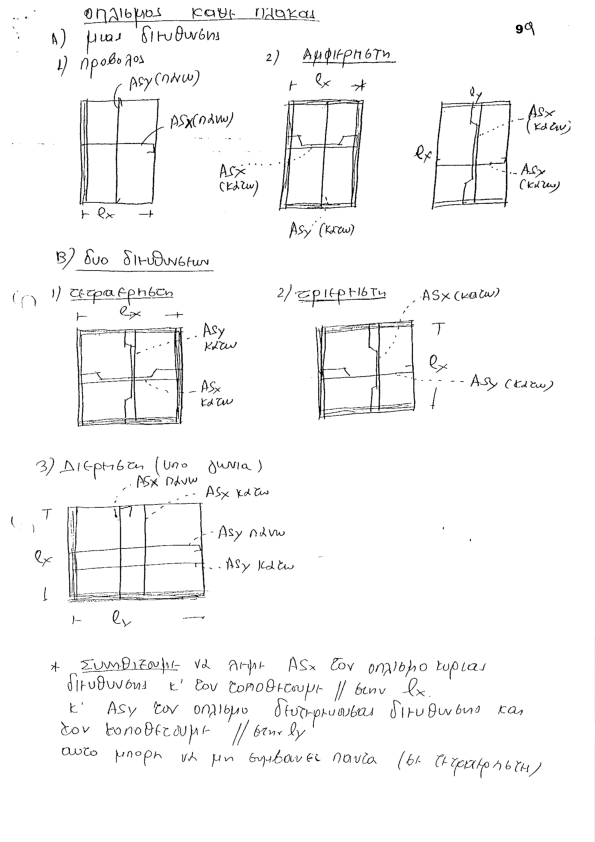 οπλισμος καθε πλακας
99
Α) μιας διευθυνσης
1) προβολος
2) Αμφιερηστη
Asy (πανω)
Asx (πανω)
lx
lx
Asx (κατω)
Asy (κατω)
ly
lx
Asx (κατω)
Asy (κατω)
Β) δυο διευθυνσεων
1) τετραερηστη
2) τριερηστη
lx
Asy κατω
Asx κατω
Asx (κατω)
lx
Asy (κατω)
3) Διερηστη (υπο γωνια)
Asx πανω
Asx κατω
lx
Asy πανω
Asy κατω
ly
* Συνηθιζουμε να λεμε Asx τον οπλισμο κυριας
διευθυνσης κ' τον τοποθετουμε // στην lx.
κ' Asy τον οπλισμο δευτερευουσας διευθυνσης και
τον τοποθετουμε // στην ly
αυτο μπορη να μη συμβαινει παντα (σε τετραερηστη)